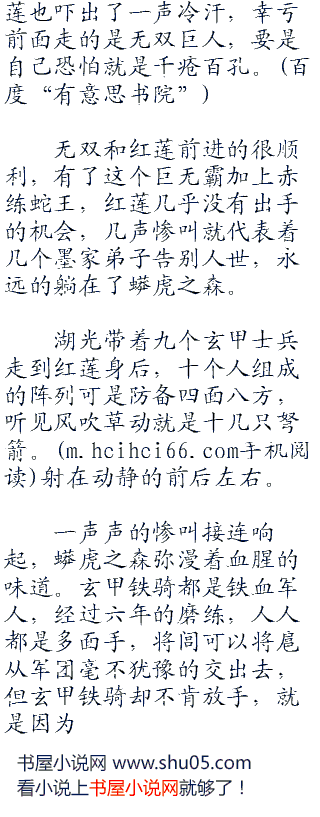 莲也吓出了一声冷汗，幸亏
前面走的是无双巨人，要是
自己恐怕就是千疮百孔。(百
度“有意思书院”)
无双和红莲前进的很顺
利，有了这个巨无霸加上赤
练蛇王，红莲几乎没有出手
的机会，几声惨叫就代表着
几个墨家弟子告别人世，永
远的躺在了蟒虎之森。
湖光带着九个玄甲士兵
走到红莲身后，十个人组成
的阵列可是防备四面八方，
听见风吹草动就是十几只弩
箭。(m.hcihci66.com手机阅
读)射在动静的前后左右。
一声声的惨叫接连响
起，蟒虎之森弥漫着血腥的
味道。玄甲铁骑都是铁血军
人，经过六年的磨练，人人
都是多面手，将闾可以将扈
从军团毫不犹豫的交出去，
但玄甲铁骑却不肯放手，就
是因为
书屋小说网 www.shu05.com
看小说上书屋小说网就够了！